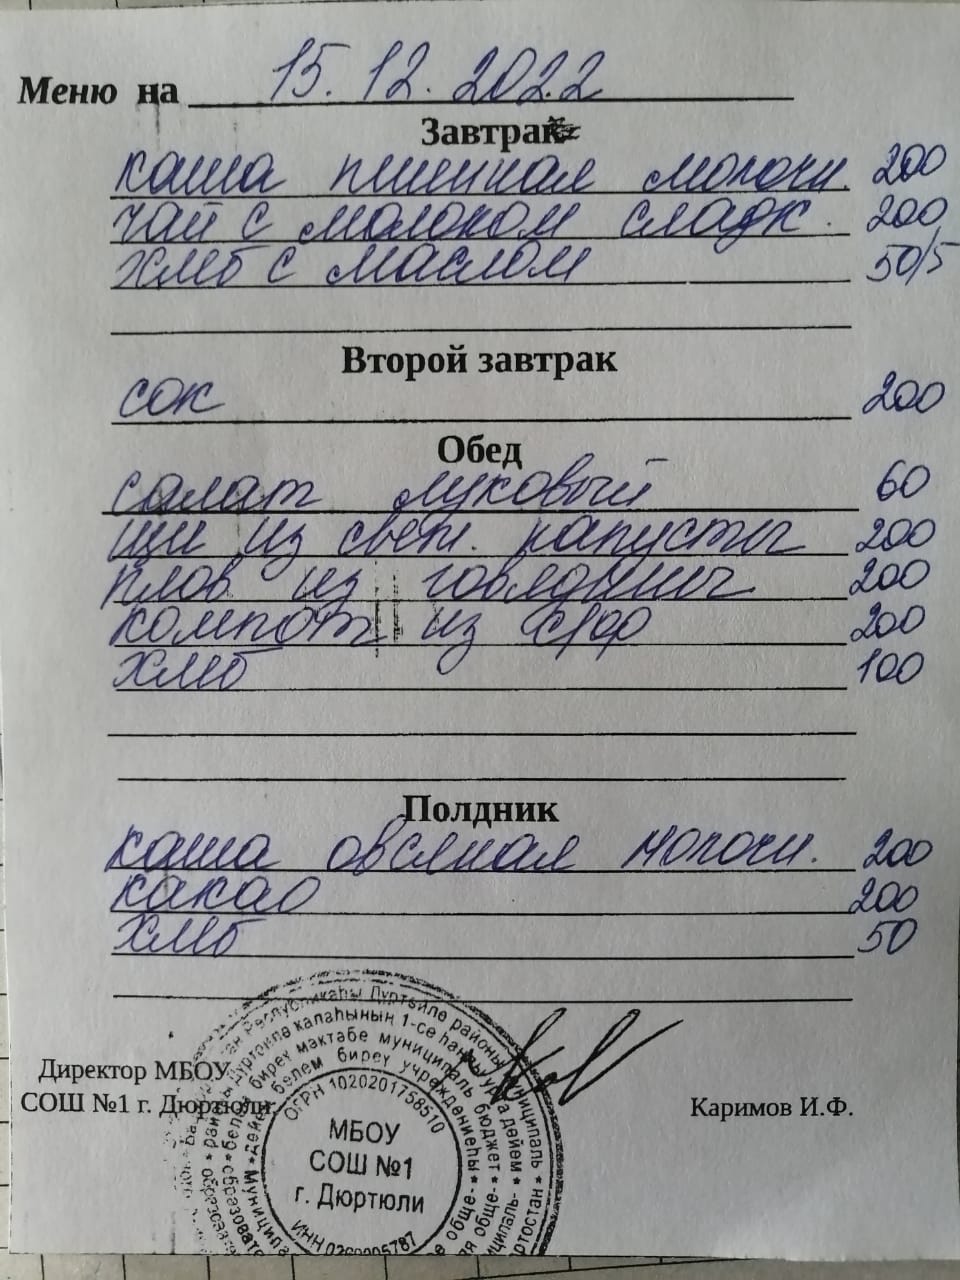 Меню на 15.12.2022
Завтрак
каша пшенная молочн. 200
чай с молоком сладк. 200
хлеб с маслом 50/5
Второй завтрак
сок 200
Обед
салат луковый 60
щи из свеж. капусты 200
плов из говядины 200
компот из с/фр 200
хлеб 100
Полдник
каша овсяная молочн. 200
какао 200
хлеб 50
Директор МБОУ
СОШ №1 г. Дюртюли
Каримов И.Ф.
ОГРН 1020201758510
МБОУ
СОШ №1
г. Дюртюли
ИНН